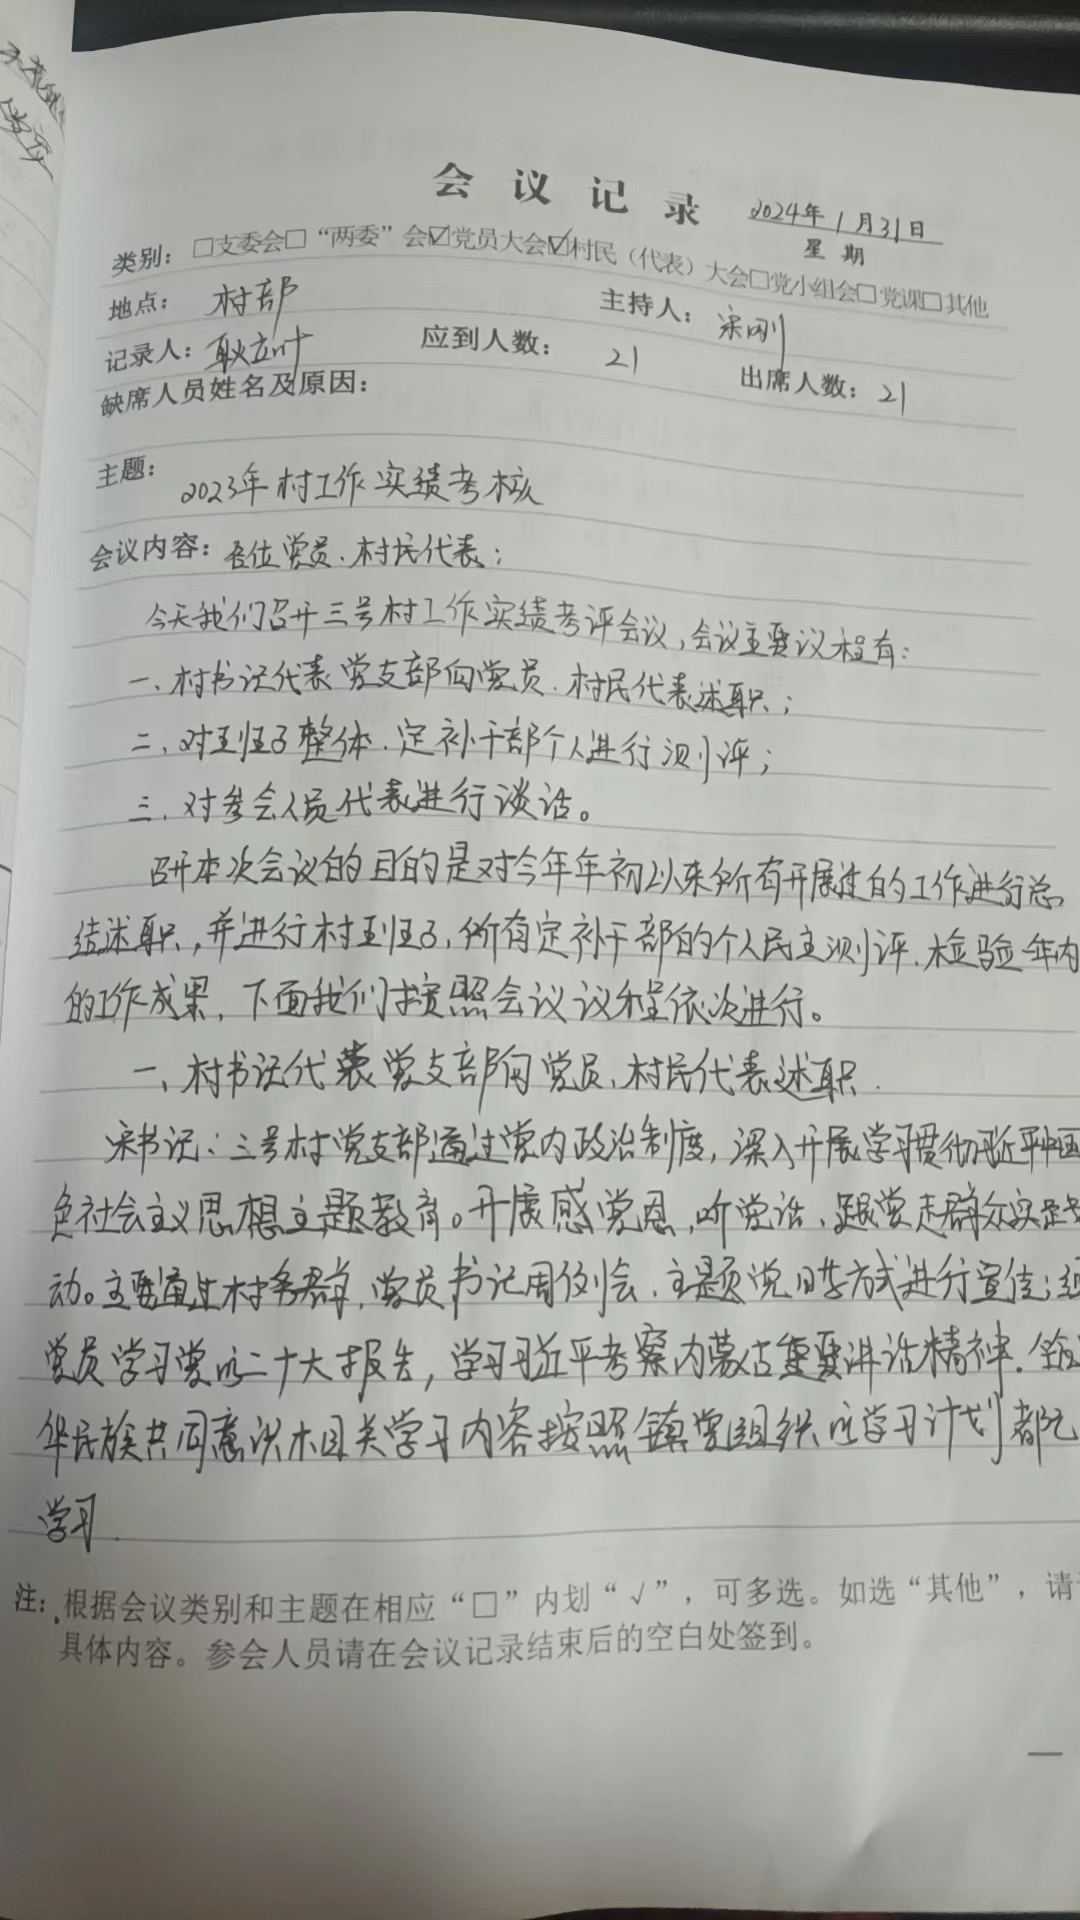 会议记录
2024年1月31日
星期
类别：□支委会□“两委”会☑党员大会☑村民（代表）大会□党小组会□党课□其他
地点：村部 主持人：宋刚
记录人：耿立叶 应到人数：21 出席人数：21
缺席人员姓名及原因：
主题：2023年村工作实绩考核
会议内容：各位党员、村民代表：
今天我们召开三号村工作实绩考评会议，会议主要议程有：
一、村书记代表党支部向党员、村民代表述职；
二、对班子整体、定补干部个人进行测评；
三、对参会人员代表进行谈话。
召开本次会议的目的是对今年年初以来所有开展过的工作进行总
结述职，并进行村班子、所有定补干部的个人民主测评，检验一年内
的工作成果，下面我们按照会议议程依次进行。
一、村书记代表党支部向党员、村民代表述职.
宋书记：三号村党支部通过党内政治制度，深入开展学习贯彻习近平中国
色社会主义思想主题教育。开展感党恩，听党话、跟党走群众实践
动。主要通过村务群，党员书记周例会、主题党日等方式进行宣传；
党员学习党的二十大报告，学习习近平考察内蒙古重要讲话精神.
华民族共同意识相关学习内容按照镇党组织的学习计划都
学习.
注：根据会议类别和主题在相应“□”内划“√”，可多选。如选“其他”，请
具体内容。参会人员请在会议记录结束后的空白处签到。